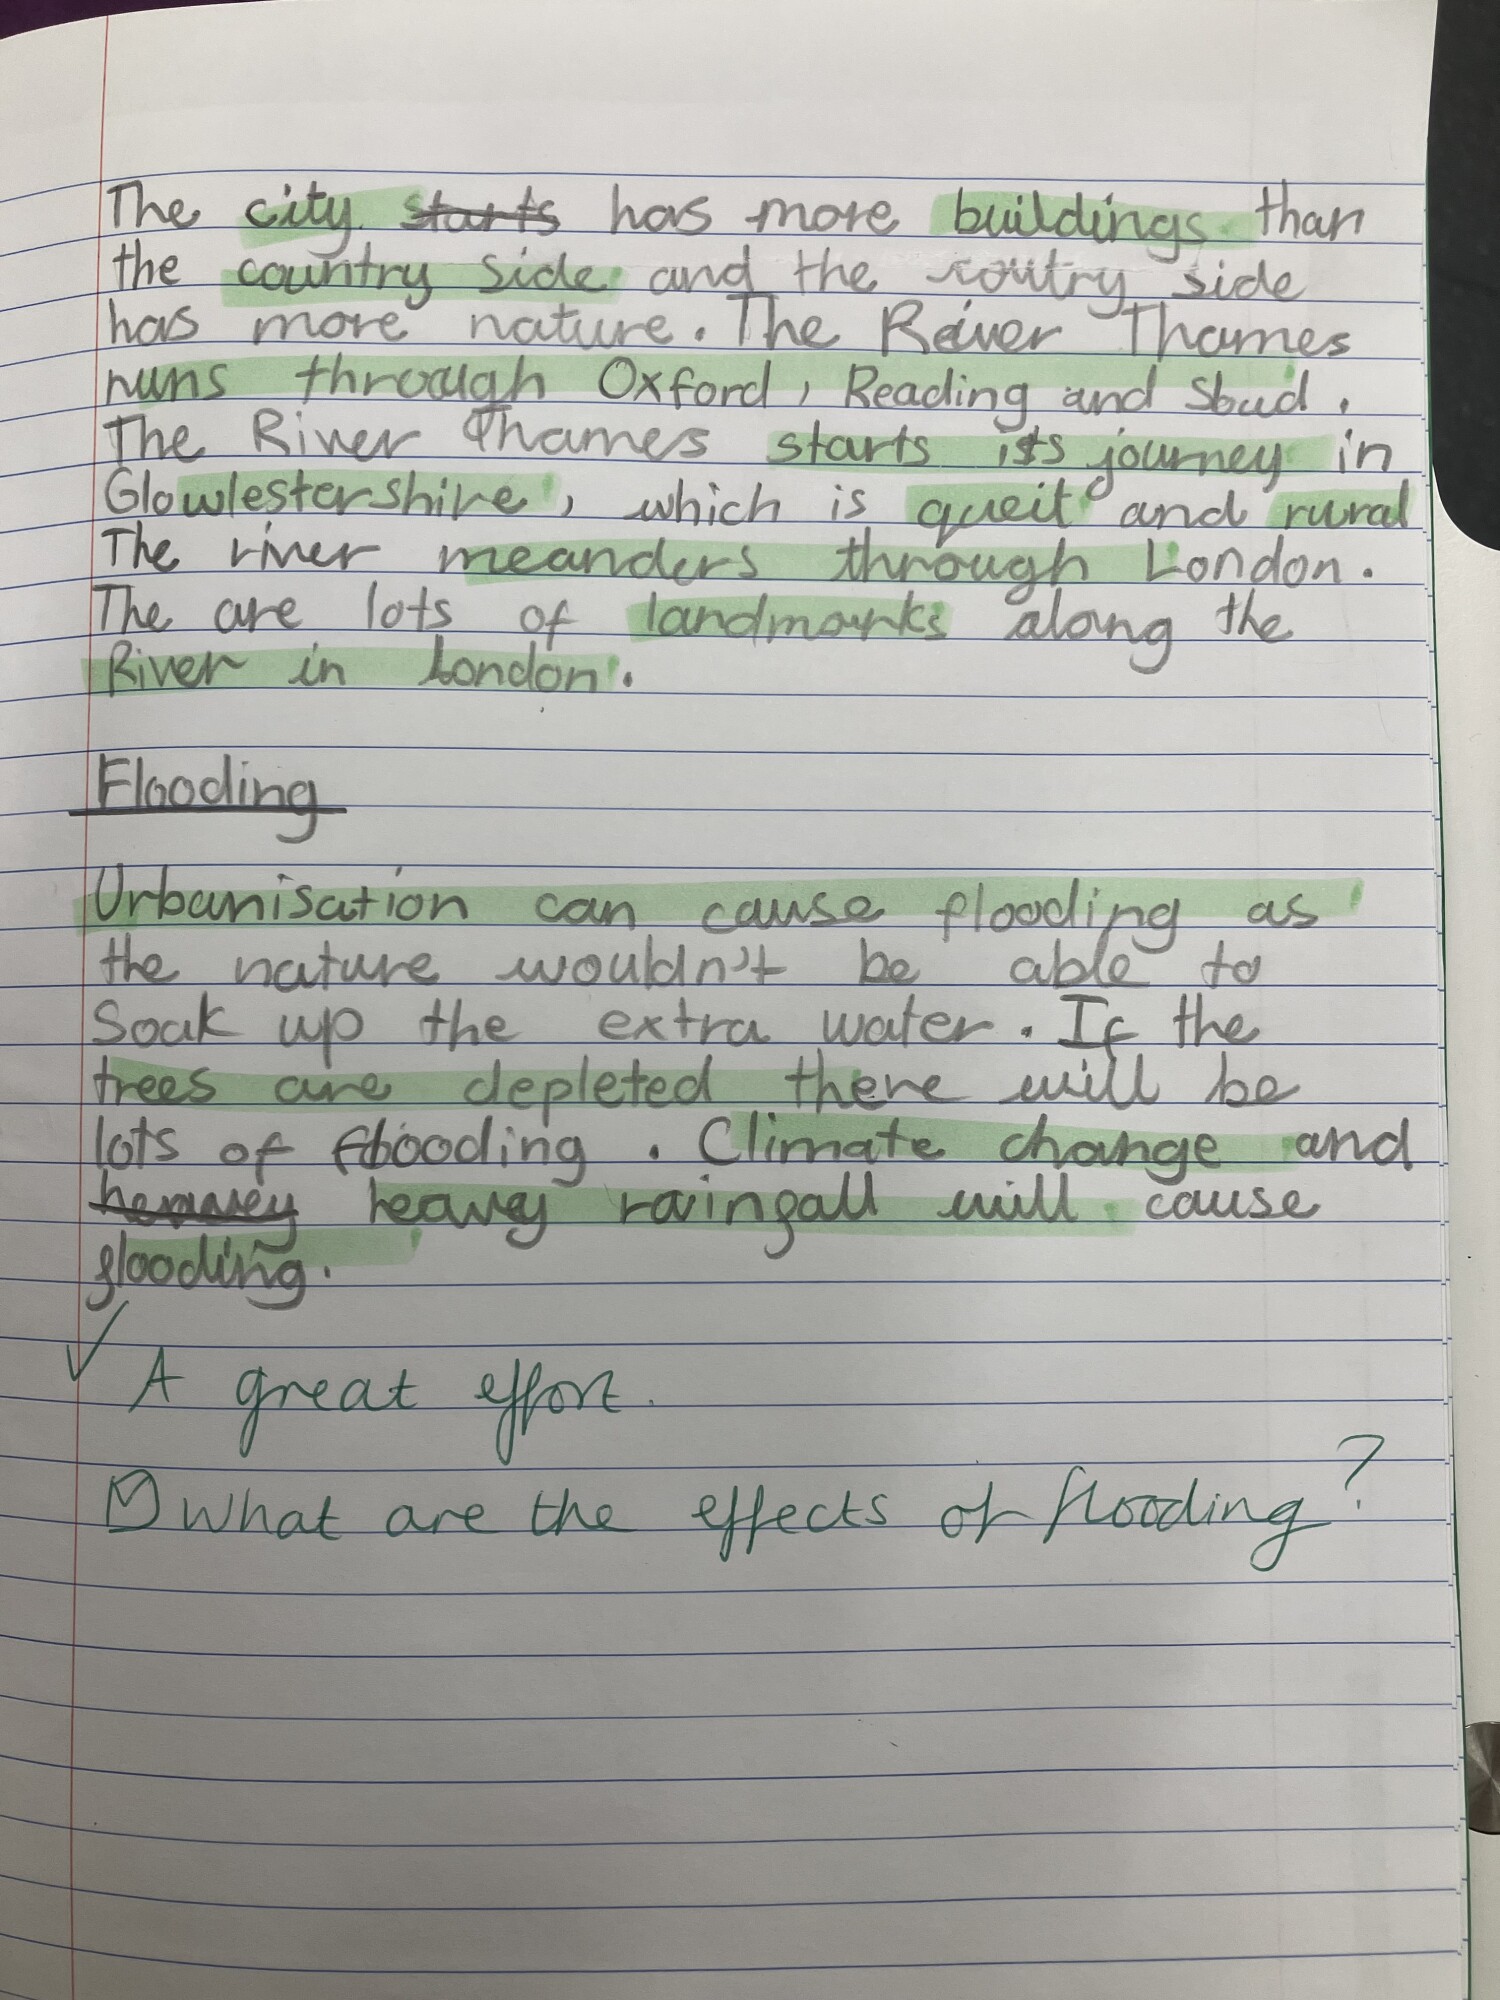 The city starts has more buildings than
the country side and the coutry side
has more nature. The River Thames
runs through Oxford, Reading and Sbud.
The River Thames starts its journey in
Glowlestershire, which is queit and rural
The river meanders through London.
The are lots of landmarks along the
River in London.
Flooding
Urbanisation can cause flooding as
the nature wouldn't be able to
Soak up the extra water. If the
trees are depleted there will be
lots of flooding. Climate change and
heavey rainfall will cause
flooding.
✓ A great effort.
What are the effects of flooding?